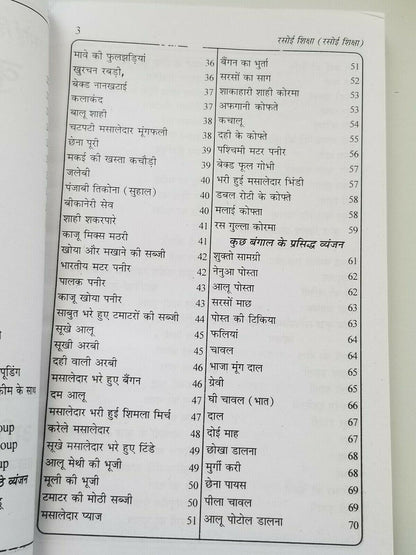 3
रसोई शिक्षा (रसोई शिक्षा)
मावे की फुलझड़ियां 36
खुरचन रबड़ो, 36
बेक्ड नानखटाई 37
कलाकंद 37
बालू शाही 38
चटपटी मसालेदार मूंगफली 38
छेना पूरी 39
मकई की खस्ता कचौड़ी 39
जलेबी 40
पंजाबी तिकोना (सुहाल) 40
बीकानेरी सेव 40
शाही शकरपारे 41
काजू मिक्स मठरी 41
खोया और मखाने की सब्जी 42
भारतीय मटर पनीर 42
पालक पनीर 43
काजू खोया पनीर 43
साबुत भरे हुए टमाटरों की सब्जी 44
सूखे आलू 44
सूखी अरबी 45
दही वाली अरबी 45
मसालेदार भरे हुए बैंगन 46
दम आलू 47
मसालेदार भरी हुई शिमला मिर्च 47
करेले मसालेदार 48
सूखे मसालेदार भरे हुए टिंडे 49
आलू मेथी की भूजी 49
मूली की भूजी 50
टमाटर की मोठी सब्जी 50
मसालेदार प्याज 51
बैंगन का भुर्ता 51
सरसों का साग 51
शाकाहारी शाही कोरमा 52
अफगानी कोफ्ते 53
कचालू 53
दही के कोफ्ते 54
पश्चिमी मटर पनीर 55
बेक्ड फूल गोभी 56
भरी हुई मसालेदार भिंडी 56
डबल रोटी के कोफ्ते 57
मलाई कोफ्ता 58
रस गुल्ला कोरमा 59
कुछ बंगाल के प्रसिद्ध व्यंजन
शुक्तो सामग्री 61
नेनुआ पोस्ता 61
आलू पोस्ता 62
सरसों माछ 63
पोस्त की टिकिया 64
फलियां 65
चावल 65
भाजा मूंग दाल 66
ग्रेवी 66
घी चावल (भात) 66
दाल 66
दोई माह 67
छोखा डालना 68
मुर्गी करी 68
छेना पायस 69
पीला चावल 69
आलू पोटोल डालना 70
पूडिंग
कीम के साथ
oup
oup
oup
व्यंजन